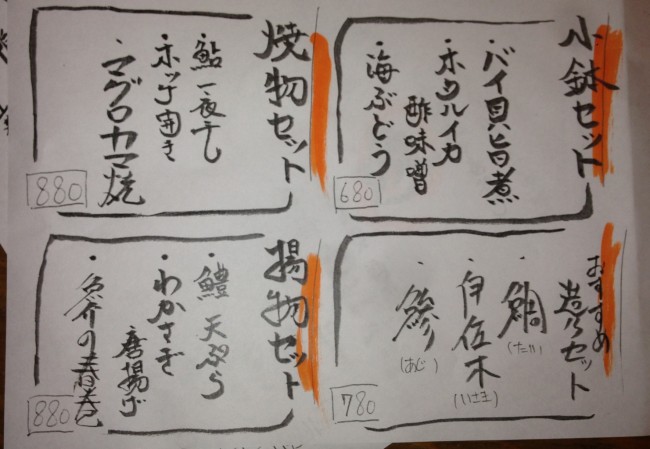 小鉢セット
・バイ貝旨煮
・ホタルイカ
酢味噌
・海ぶどう
680
焼物セット
・鮎一夜干し
・ホッケ開き
・マグロカマ焼
880
おすすめ
造りセット
・鯛
(たい)
・伊佐木
(いさき)
・鰺
(あじ)
780
揚物セット
・鱧天ぷら
・わかさぎ
唐揚げ
・魚介の春巻
880